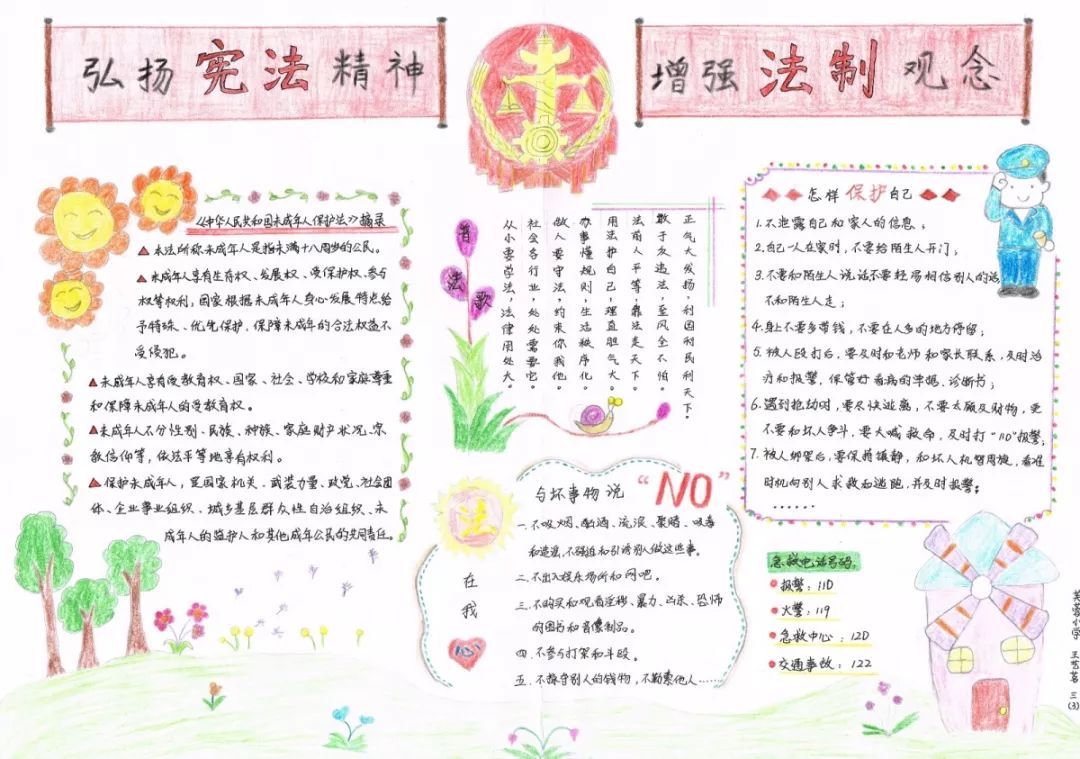 弘扬宪法精神
增强法制观念
《中华人民共和国未成年人保护法》摘录
本法所称未成年人是指未满十八周岁的公民。
未成年人享有生存权、发展权、受保护权、参与
权等权利,国家根据未成年人身心发展特点给
予特殊、优先保护,保障未成年的合法权益不
受侵犯。
未成年人享有受教育权、国家、社会、学校和家庭尊重
和保障未成年人的受教育权。
未成年人不分性别、民族、种族、家庭财产状况、宗
教信仰等,依法平等地享有权利。
保护未成年人,是国家机关、武装力量、政党、社会团
体、企业事业组织、城乡基层群众性自治组织、未
成年人的监护人和其他成年公民的共同责任。
普法歌
正气大发扬,利国利民利天下。
敢于反违法,歪风全不怕
法前人平等,靠法走天下。
用法护自己,理直胆气大。
办事懂规则,生活秩序化。
做人要守法,约束你我他。
社会各行业,处处需要它。
从小要学法,法律用处大。
怎样保护自己
1.不泄露自己和家人的信息;
2.自己一人在家时,不要给陌生人开门;
3.不要和陌生人说话不要轻易相信别人的话
不和陌生人走;
4.身上不要多带钱,不要在人多的地方停留;
5.被人殴打后,要及时和老师和家长联系,及时治
疗和报警,保管好看病的单据、诊断书;
6.遇到抢劫时,要尽快逃离,不要太顾及财物,更
不要和坏人争斗,要大喊救命,及时打“110”报警;
7.被人绑架后,要保持镇静,和坏人机智周旋,看准
时机向别人求救和逃跑,并及时报警;
……
法在我心
与坏事物说“NO”
一.不吸烟、酗酒、流浪、聚赌、吸毒
和造谣,不强迫和引诱别人做这些事。
二.不出入娱乐场所和网吧。
三.不购买和观看淫秽、暴力、凶杀、恐怖
的图书和音像制品。
四.不参与打架和斗殴。
五.不掠夺别人的钱物,不勒索他人……
急救电话号码:
报警:110
火警:119
急救中心:120
交通事故:122
芙蓉小学 王艺茗 三(3)